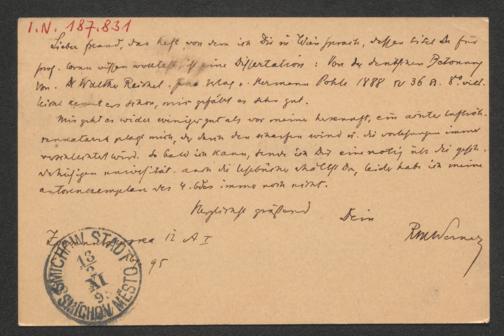 I.N. 187.831
Lieber freund, das heft, von dem ich Dir in Wien sprach, dessen titel Du für
prof. wissen wolltest, ist eine Dissertation: Von der deutschen Betonung
Von Dr Walther Reichel. Jena Verlag v. Hermann Pohle 1888 IV 36 S. 8°
leicht kennt ers schon, mir gefällt es sehr gut.
Mir geht es wieder weniger gut als vor meiner herkunft, ein
plagt mich, der durch den scharfen wind u. die vorlesungen immer
verschlechtert wird. So bald ich kann, sende ich Dir eine notiz über die
universität. auch die Du, leider habe ich meine
autorenexemplare des 4. immer noch nicht.
Herzlichst grüßend
Dein
RMWerner
II A I
95
SMICHOW STADT
13
XI
95
SMÍCHOV MĚSTO